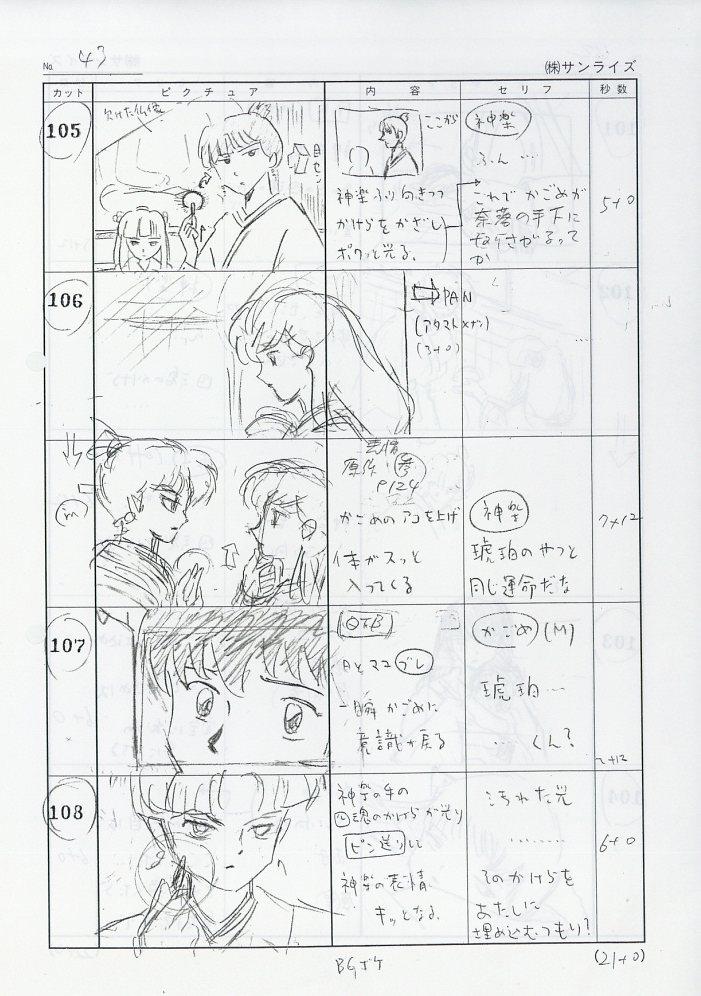 No. 43
㈱サンライズ
カット ピクチュア 内容 セリフ 秒数
105
欠けた仏像
目セン
ここが
神楽ふり向きつつ
かけらをかざし
ポウッと光る。
神楽
ふん…
これでかごめが
奈落の手下に
なりさがるって
か
5+0
106
PAN
(3+0)
in
表情
原作 参
P124
かごめのアゴを上げ
体がスッと
入ってくる
神楽
琥珀のやつと
同じ運命だな
7+12
107
Q T.B
目とマユブレ
一瞬かごめに
意識が戻る
かごめ(M)
琥珀…
…くん?
2+12
108
神楽の手の
魂のかけらが光り
ピン送りして
神楽の表情
キッとなる。
汚れた光
………
そのかけらを
あたしに
埋め込むつもり?
6+0
BGボケ
(21+0)